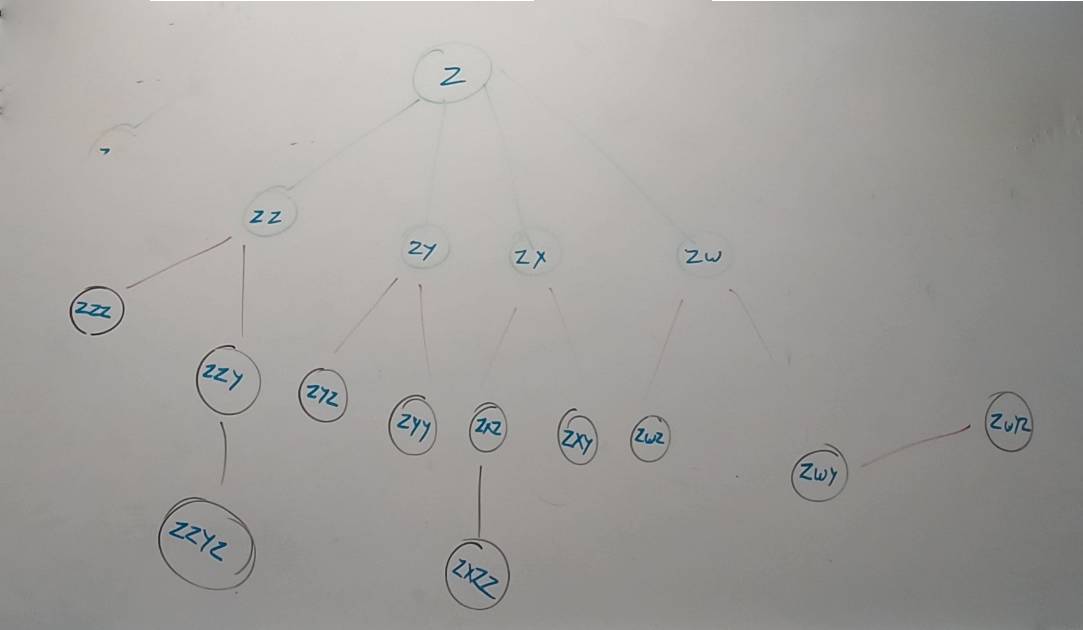 Z
ZZ
ZY
ZX
ZW
ZZZ
ZZY
ZYZ
ZYY
ZXZ
ZXY
ZWZ
ZWY
ZZYZ
ZXZZ